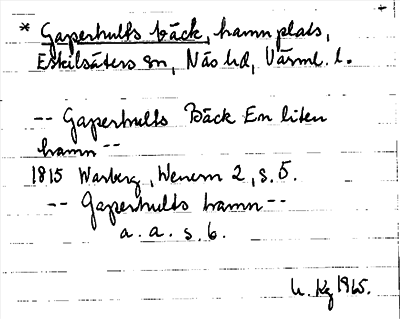 * Gaperhults bäck, hamnplats,
Eskilsäters sn, Näs hd, Värml. l.
-- Gaperhults Bäck En liten
hamn --
1815 Warberg, Wenern 2, s. 5.
-- Gaperhults hamn --
a. a. s. 6.
1965.